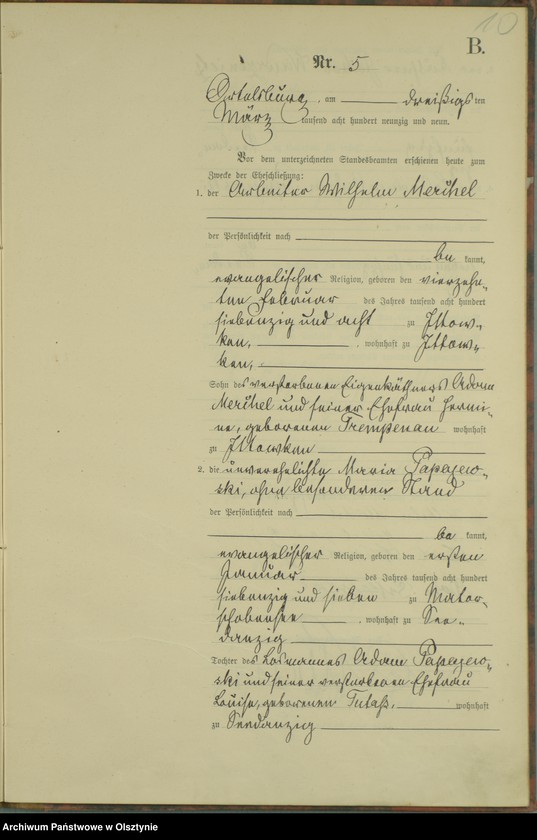 10
B.
Nr. 5
Ortelsburg, am dreißigsten
März tausend acht hundert neunzig und neun.
Vor dem unterzeichneten Standesbeamten erschienen heute zum
Zwecke der Eheschließung:
1. der Arbeiter Wilhelm Merchel
der Persönlichkeit nach
be kannt,
evangelischer Religion, geboren den vierzehn-
ten Februar des Jahres tausend acht hundert
siebenzig und acht zu Ittow-
ken, wohnhaft zu Ittow-
ken,
Sohn des verstorbenen Eigenkäthners Adam
Merchel und seiner Ehefrau Hermi-
ne, geborenen Trempenau wohnhaft
zu Ittowken
2. die unverehelichte Maria Papajew-
ski, ohne besonderen Stand
der Persönlichkeit nach
be kannt,
evangelischer Religion, geboren den ersten
Januar des Jahres tausend acht hundert
siebenzig und sieben zu Mator-
schobensee, wohnhaft zu See-
danzig
Tochter des Losmannes Adam Papajew-
ski und seiner verstorbenen Ehefrau
Louise, geborenen Tutaß, wohnhaft
zu Seedanzig
Archiwum Państwowe w Olsztynie